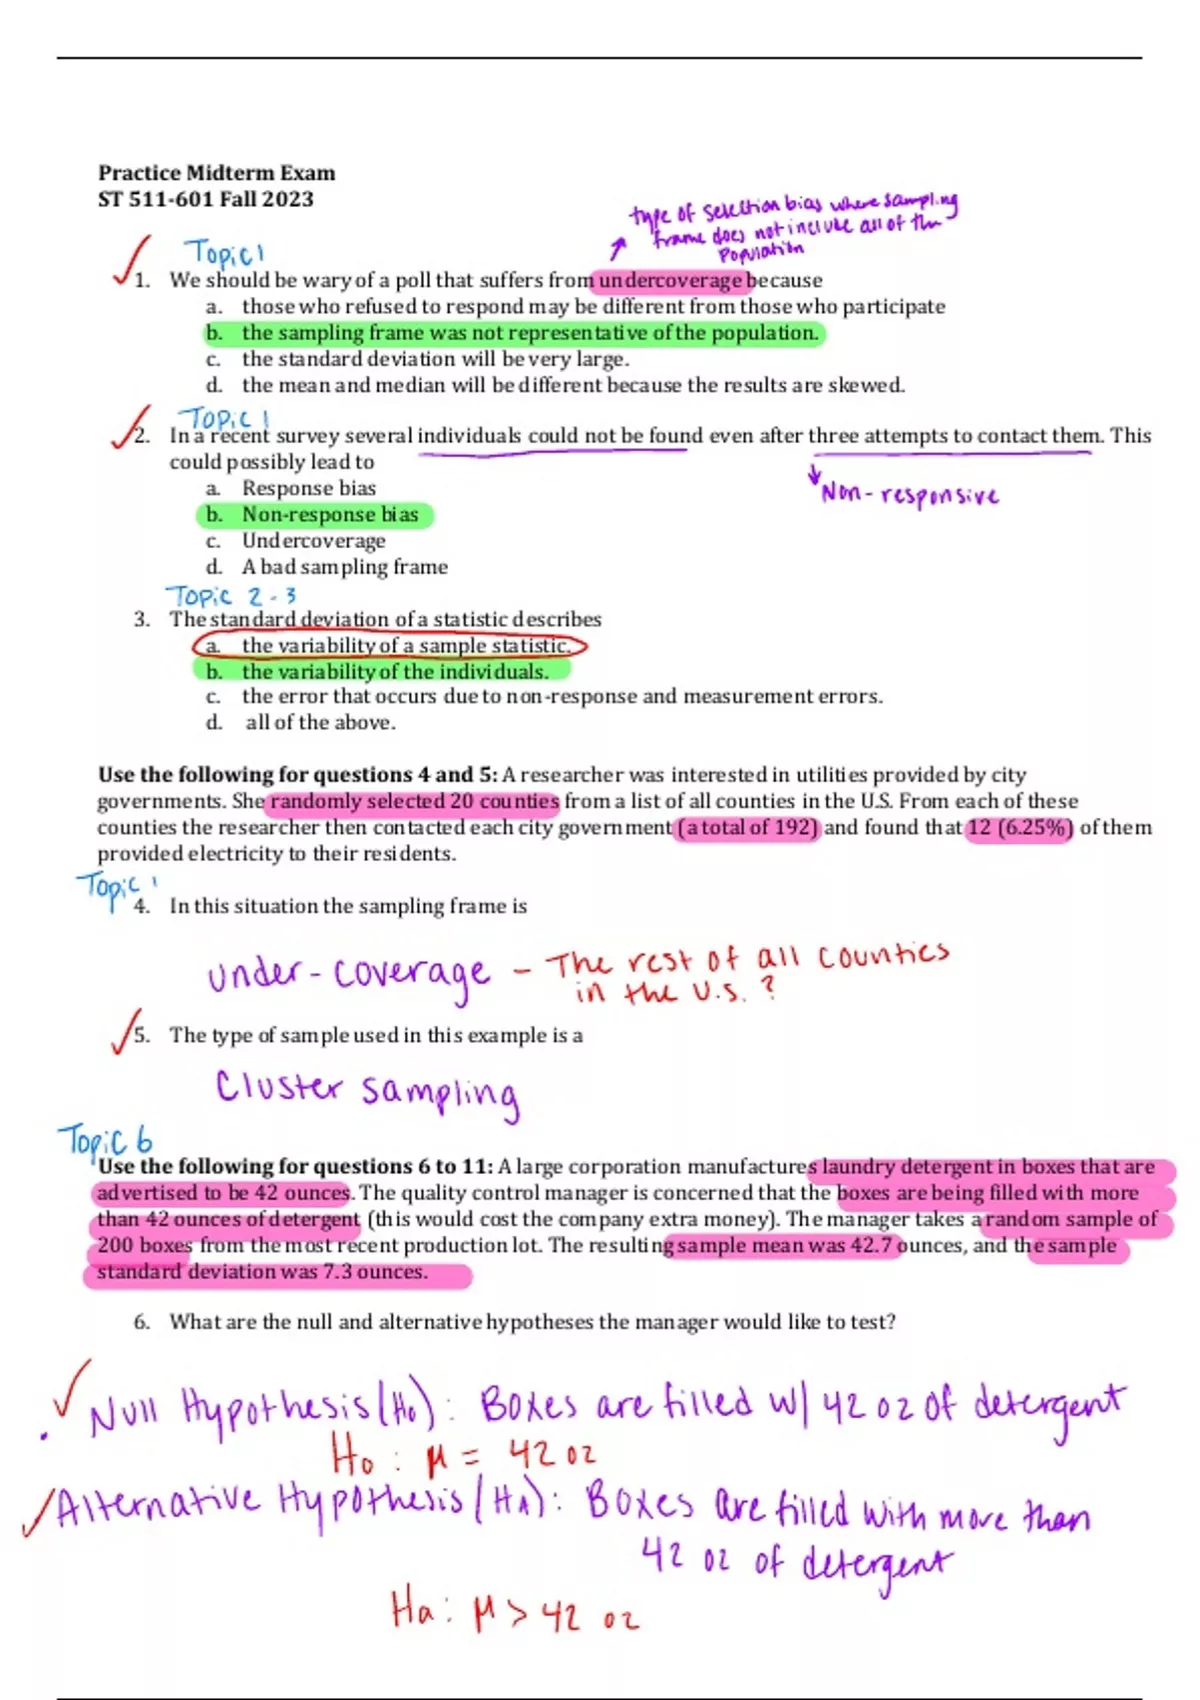 Practice Midterm Exam
ST 511-601 Fall 2023
type of selection bias where sampling
frame does not include all of the
population
Topic 1
1. We should be wary of a poll that suffers from undercoverage because
a. those who refused to respond may be different from those who participate
b. the sampling frame was not representative of the population.
c. the standard deviation will be very large.
d. the mean and median will be different because the results are skewed.
Topic 1
2. In a recent survey several individuals could not be found even after three attempts to contact them. This
could possibly lead to
a. Response bias
Non-responsive
b. Non-response bias
c. Undercoverage
d. A bad sampling frame
Topic 2-3
3. The standard deviation of a statistic describes
a. the variability of a sample statistic.
b. the variability of the individuals.
c. the error that occurs due to non-response and measurement errors.
d. all of the above.
Use the following for questions 4 and 5: A researcher was interested in utilities provided by city
governments. She randomly selected 20 counties from a list of all counties in the U.S. From each of these
counties the researcher then contacted each city government (a total of 192) and found that 12 (6.25%) of them
provided electricity to their residents.
Topic 1
4. In this situation the sampling frame is
under-coverage - The rest of all counties
in the U.S. ?
5. The type of sample used in this example is a
Cluster sampling
Topic 6
Use the following for questions 6 to 11: A large corporation manufactures laundry detergent in boxes that are
advertised to be 42 ounces. The quality control manager is concerned that the boxes are being filled with more
than 42 ounces of detergent (this would cost the company extra money). The manager takes a random sample of
200 boxes from the most recent production lot. The resulting sample mean was 42.7 ounces, and the sample
standard deviation was 7.3 ounces.
6. What are the null and alternative hypotheses the manager would like to test?
Null Hypothesis (Ho): Boxes are filled w/ 42 oz of detergent
Ho: μ = 42 oz
Alternative Hypothesis (HA): Boxes are filled with more than
42 oz of detergent
Ha: μ > 42 oz